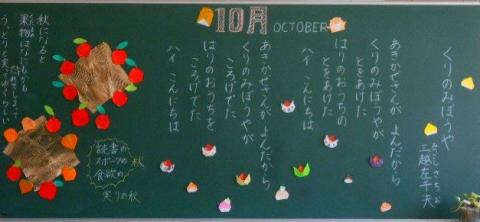 10月 OCTOBER
くりのみぼうや
三越左千夫
みつこしさちお
あきかぜさんが よんだから
くりのみぼうやが
とをあけた
はりのおうちの
とをあけた
ハイ こんにちは
あきかぜさんが よんだから
くりのみぼうや
ころげてた
はりのおうちを
ころげてた
ハイ こんにちは
秋になると
果物はなにもかも
うっとりと実ってゆくらしい
読書の
スポーツの
食欲の
秋
実りの秋